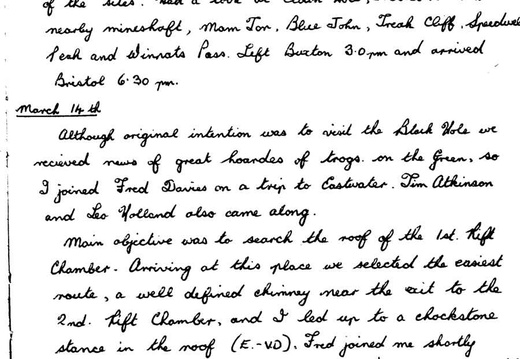 of the sites. Had a look at
nearby mineshaft, Mam Tor, Blue John, Treak Cliff, Speedwell
Peak and Winnats Pass. Left Buxton 3.0 pm and arrived
Bristol 6.30 pm.
March 14th
Although original intention was to visit the Black Hole we
recieved news of great hoardes of trogs. on the Green, so
I joined Fred Davies on a trip to Eastwater. Tim Atkinson
and Leo Holland also came along.
Main objective was to search the roof of the 1st. Rift
Chamber. Arriving at this place we selected the easiest
route, a well defined chimney near the exit to the
2nd. Rift Chamber, and I led up to a chockstone
stance in the roof (E.-V.D). Fred joined me shortly